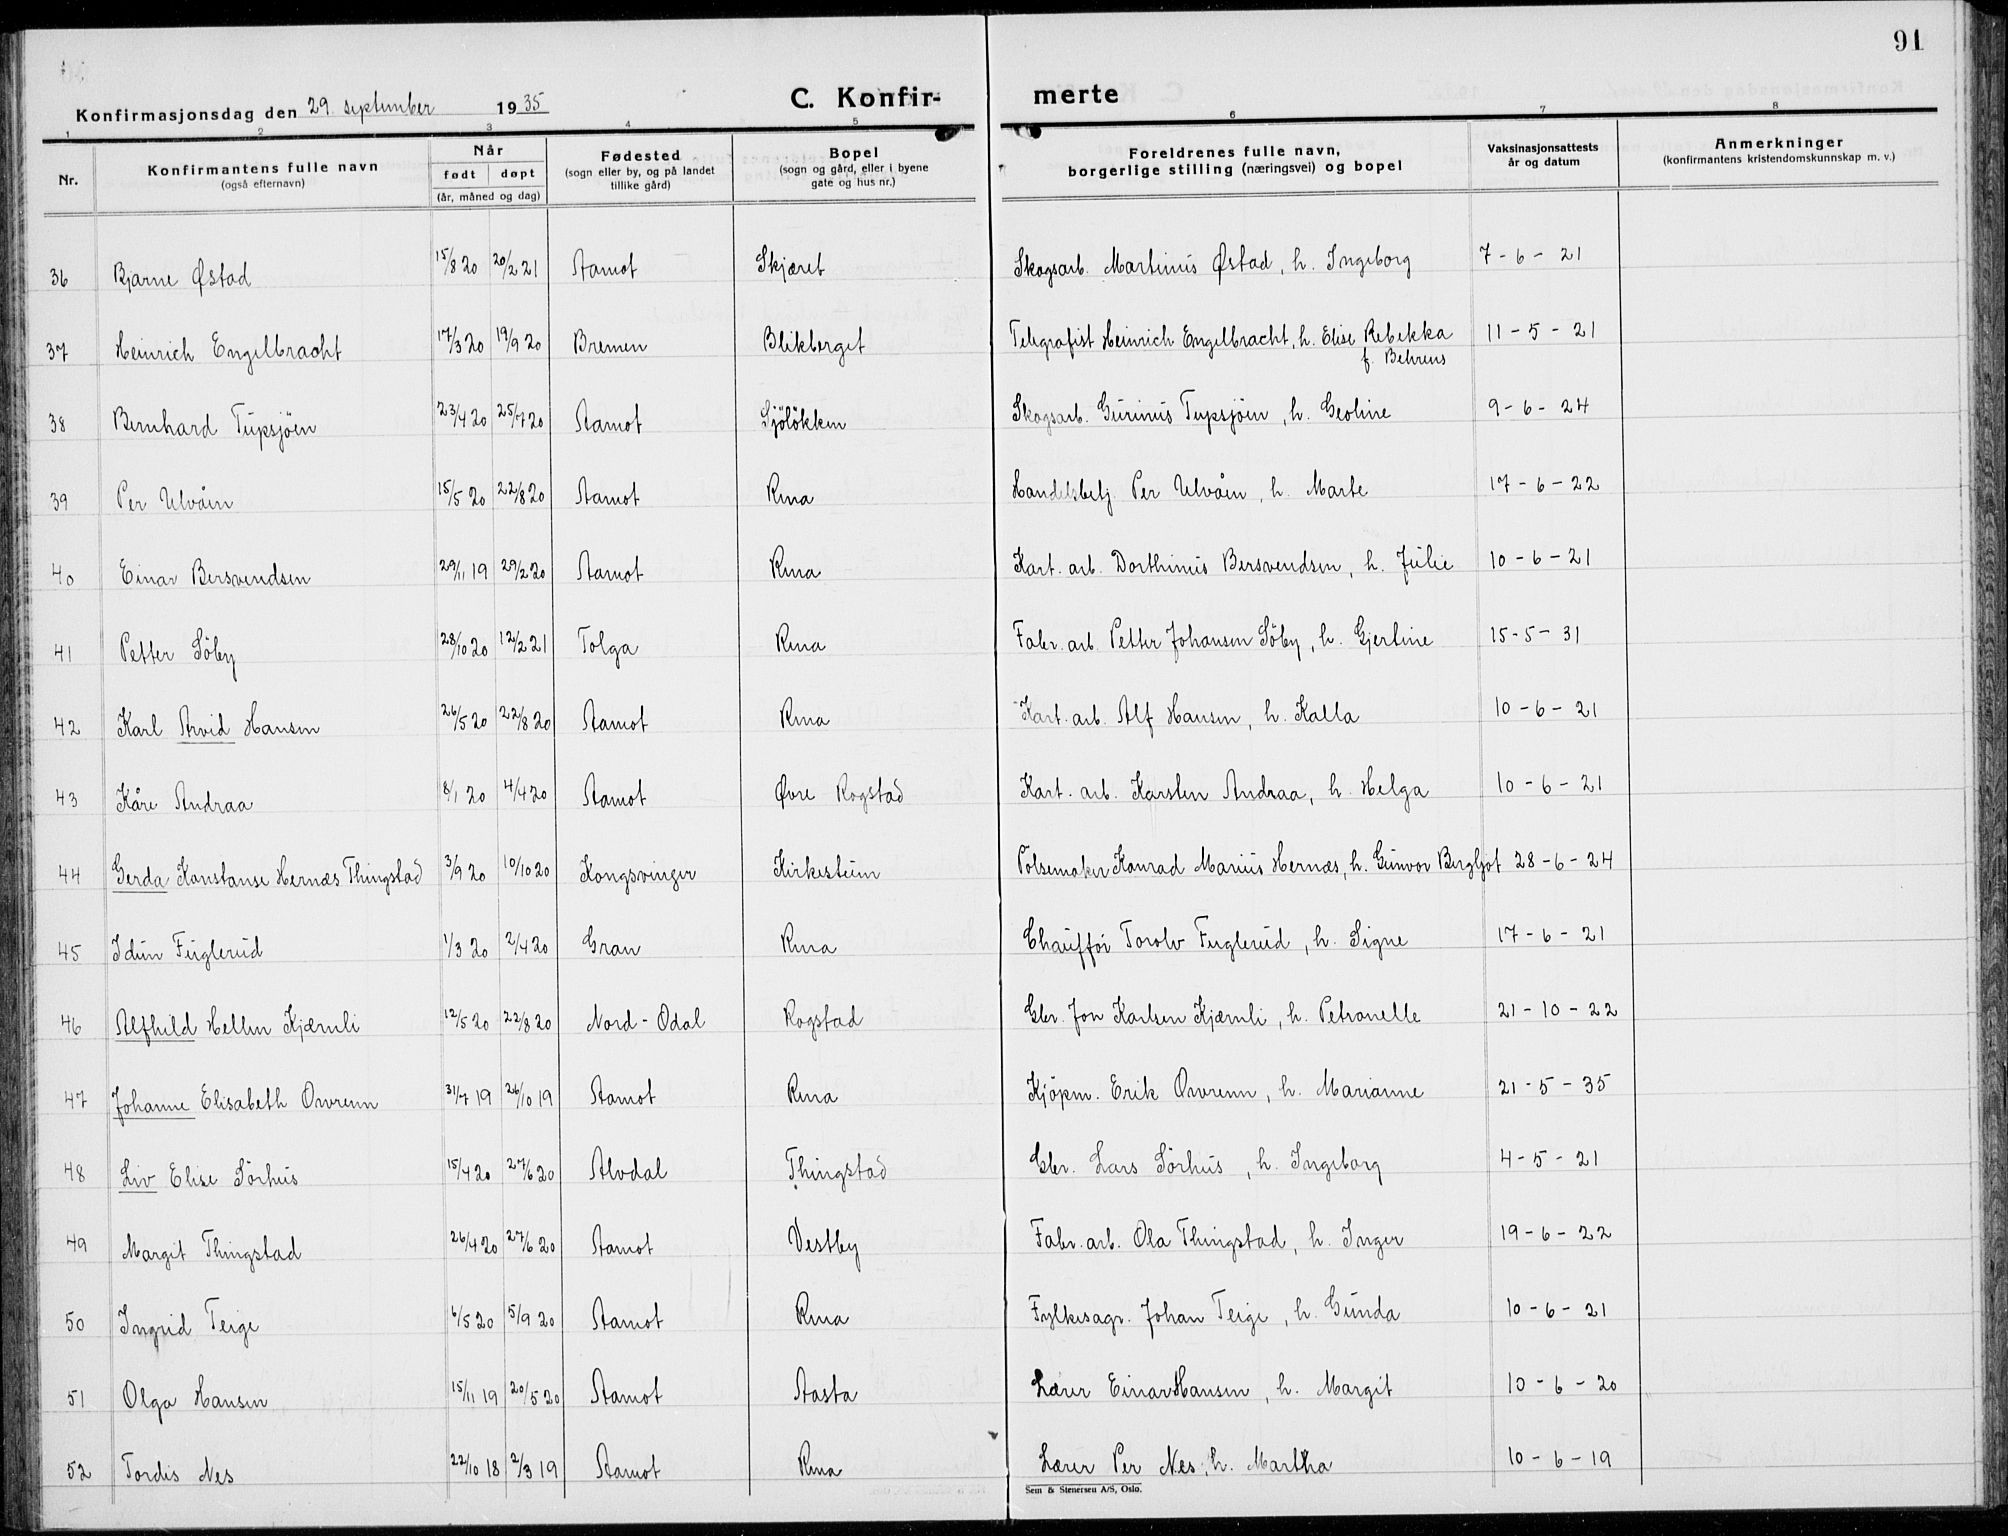 91
Konfirmasjonsdag den 29. september 1935
C. Konfir-merte
1 2 3 4 5 6 7 8
Nr.
Konfirmantens fulle navn
(også efternavn)
Når
født døpt
(år, måned og dag)
Fødested
(sogn eller by, og på landet
tillike gård)
Bopel
(sogn og gård, eller i byene
gate og hus nr.)
Foreldrenes fulle navn,
borgerlige stilling (næringsvei) og bopel
Vaksinasjonsattests
år og datum
Anmerkninger
(konfirmantens kristendomskunnskap m. v.)
36 Bjarne Østad 15/8 20 20/2 21 Aamot Skjæret Skogsarb. Martinus Østad, h. Ingeborg 7-6-21
37 Heinrich Engelbracht 17/3 20 19/9 20 Bremen Blikberget Telegrafist Heinrich Engelbracht, h. Elise Rebekka 11-5-21
f. Behrens
38 Bernhard Tupsjöen 23/4 20 25/7 20 Aamot Sjölökken Skogsarb. Gurinus Tupsjöen, h. Geoline 9-6-24
39 Per Ulvåen 15/5 20 22/8 20 Aamot Rena Handelsbetj. Per Ulvåen, h. Marte 17-6-22
40 Einar Bersvendsen 29/11 19 29/2 20 Aamot Rena Kart. arb. Dorthinus Bersvendsen, h. Julie 10-6-21
41 Petter Söby 28/10 20 12/2 21 Tolga Rena Fabr. arb. Petter Johansen Söby, h. Gjertine 15-5-31
42 Karl Arvid Hansen 26/5 20 22/8 20 Aamot Rena Kart. arb. Alf Hansen, h. Kalla 10-6-21
43 Kåre Andraa 8/1 20 4/4 20 Aamot Øvre Rogstad Kart. arb. Karsten Andraa, h. Helga 10-6-21
44 Gerda Konstanse Hernæs Thingstad 3/9 20 10/10 20 Kongsvinger Kirkesteien Pølsemaker Konrad Marius Hernæs, h. Gunvor Bergljot 28-6-24
45 Idun Fuglerud 1/3 20 2/4 20 Gran Rena Chaufför Torolv Fuglerud, h. Signe 17-6-21
46 Alfhild Hellen Kjærnli 12/5 20 22/8 20 Nord-Odal Rogstad Gbr. Jon Karlsen Kjærnli, h. Petronelle 21-10-22
47 Johanne Elisabeth Owrenn 31/7 19 26/10 19 Aamot Rena Kjöpm. Erik Owrenn, h. Marianne 21-5-35
48 Liv Elise Sörhus 15/4 20 27/6 20 Alvdal Thingstad Gbr. Lars Sörhus, h. Ingeborg 4-5-21
49 Margit Thingstad 26/4 20 27/6 20 Aamot Vestby Fabr. arb. Ola Thingstad, h. Inger 19-6-22
50 Ingrid Teige 6/5 20 5/9 20 Aamot Rena Fylkesagr. Johan Teige, h. Gunda 10-6-21
51 Olga Hansen 15/11 19 20/5 20 Aamot Aasta Lærer Einar Hansen, h. Margit 10-6-20
52 Tordis Nes 22/10 18 2/3 19 Aamot Rena Lærer Per Nes, h. Martha 10-6-19
Sem & Stenersen A/S, Oslo.